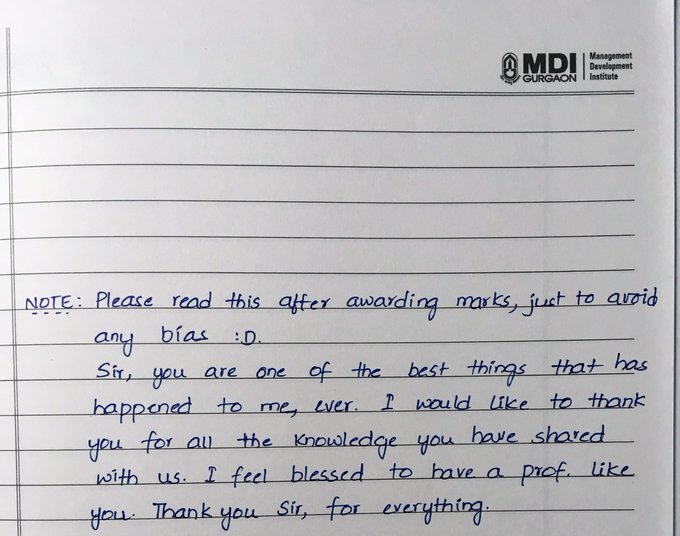 MDI
GURGAON
Management
Development
Institute
NOTE: Please read this after awarding marks, just to avoid
any bias :D.
Sir, you are one of the best things that has
happened to me, ever. I would like to thank
you for all the knowledge you have shared
with us. I feel blessed to have a prof. like
you. Thank you Sir, for everything.